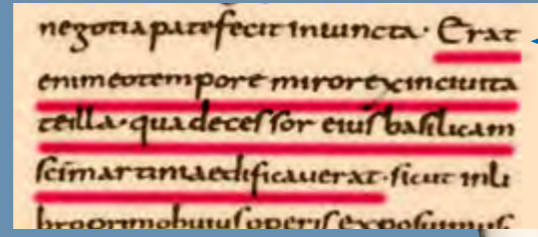 negotia patefecit iniuncta. Erat
enim eo tempore miror ex inciuita
te illa. qua decessor eius basilicam
sci martini aedificauerat. sicut in li
bro primo huius operis exposuimus